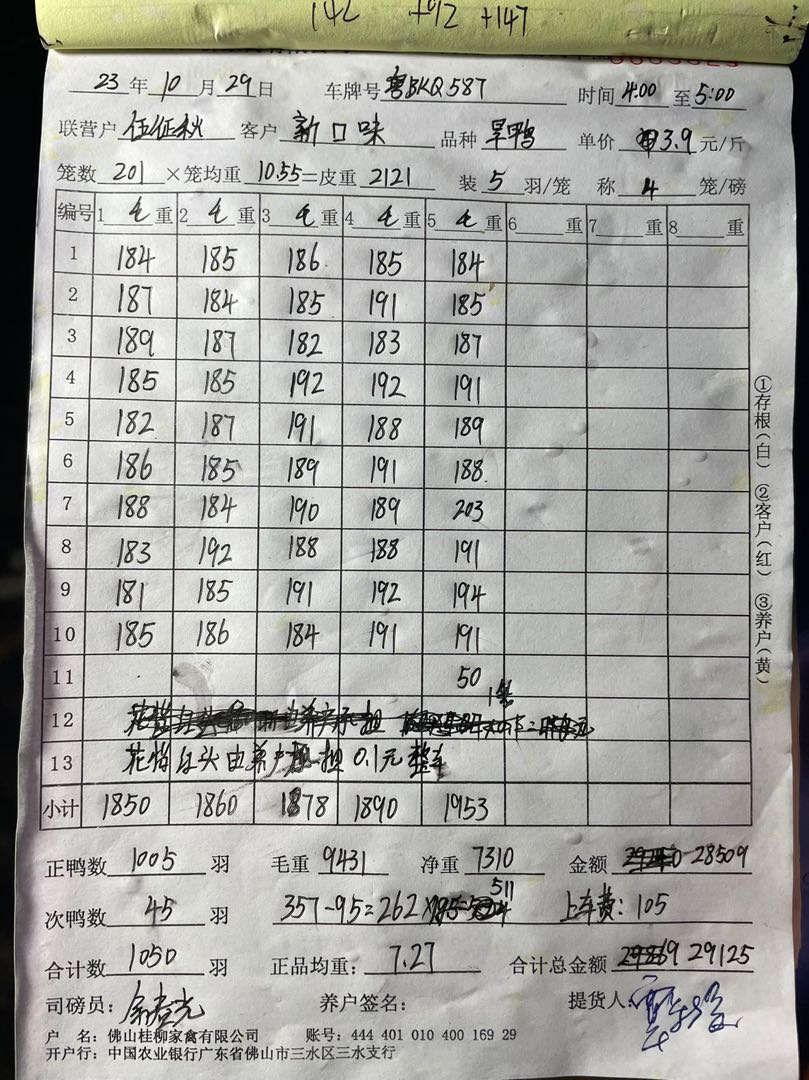 142 +92 +147
23 年 10 月 29 日 车牌号 粤BKQ587 时间 4:00 至 5:00
联营户 任征秋 客户 新口味 品种 旱鸭 单价 3.9 元/斤
笼数 201 ×笼均重 10.55=皮重 2121 装 5 羽/笼 称 4 笼/磅
编号 1 毛 重 2 毛 重 3 毛 重 4 毛 重 5 毛 重 6 重 7 重 8 重
1 184 185 186 185 184
2 187 184 185 191 185
3 189 187 182 183 187
4 185 185 192 192 191
5 182 187 191 188 189
6 186 185 189 191 188
7 188 184 190 189 203
8 183 192 188 188 191
9 181 185 191 192 194
10 185 186 184 191 191
11 50
12
13 由养户担 0.1元整车
小计 1850 1860 1878 1890 1953
正鸭数 1005 羽 毛重 9431 净重 7310 金额 28509
次鸭数 45 羽 357-95=262 511 上车费:105
合计数 1050 羽 正品均重: 7.27 合计总金额 29125
司磅员: 养户签名: 提货人:
户 名:佛山桂柳家禽有限公司 账号:444 401 010 400 169 29
开户行:中国农业银行广东省佛山市三水区三水支行
①存根(白) ②客户(红) ③养户(黄)